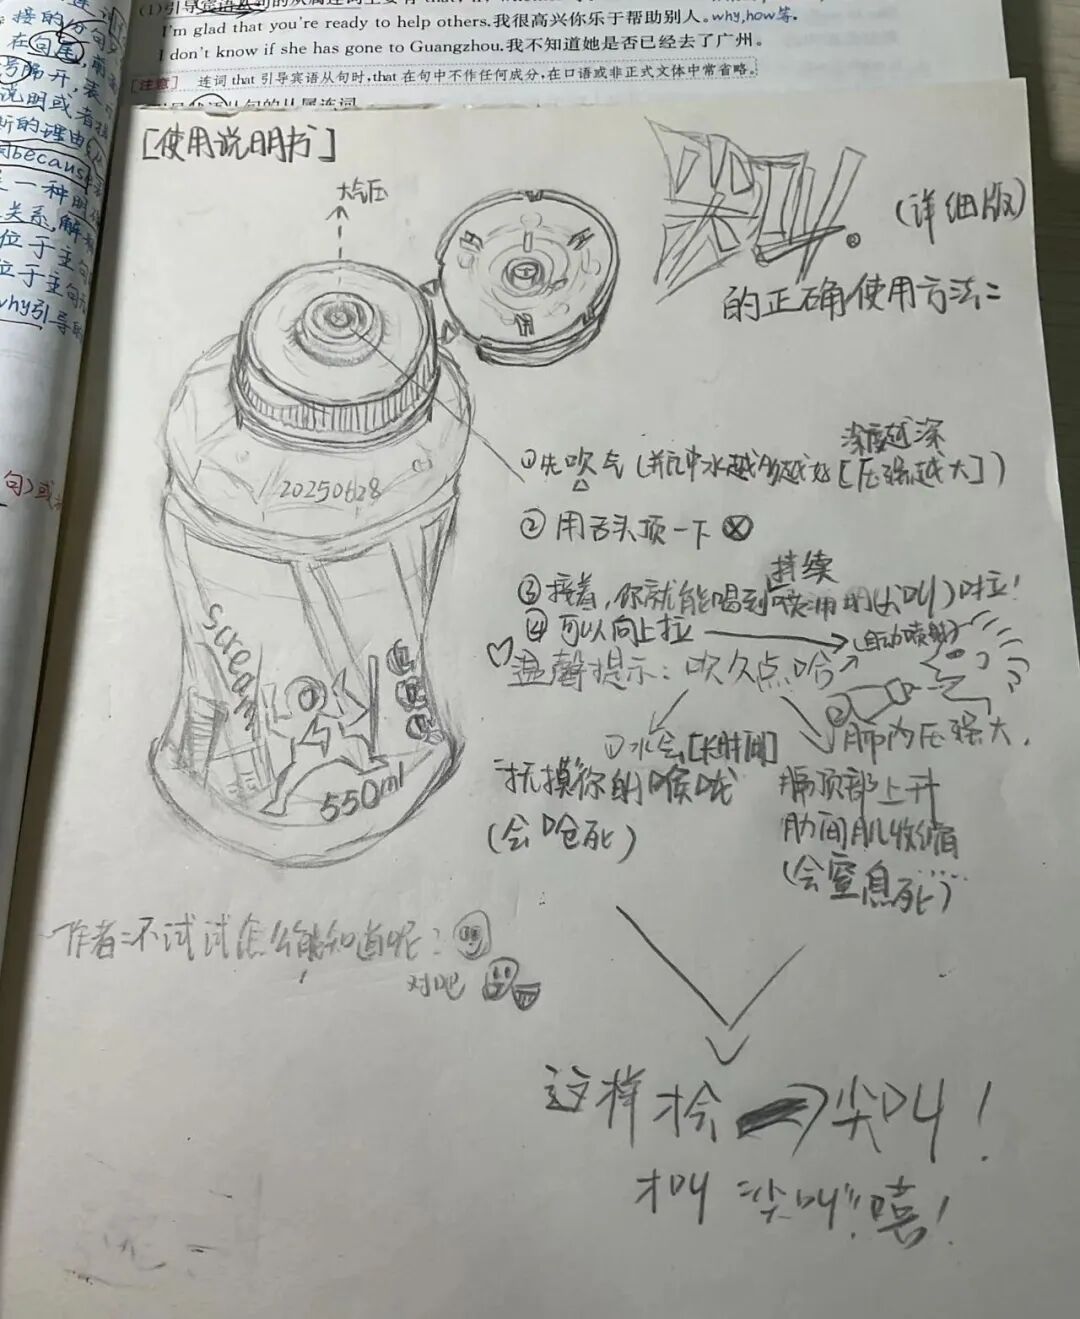 I'm glad that you're ready to help others.我很高兴你乐于帮助别人。why,how等.
I don't know if she has gone to Guangzhou.我不知道她是否已经去了广州。
[注意] 连词 that 引导宾语从句时,that 在句中不作任何成分,在口语或非正式文体中常省略。
接的分句
在句尾,前
号隔开,表
说明或者
新的理由
because
一种
关系,解
位于主句
位于主句
why引导的
句)或
[使用说明书]
大气压
尖叫。
(详细版)
的正确使用方法:
20250628
scream
550ml
①先吹气(瓶中水越多越好[压强越大])
深度越深
②用舌头顶一下⊗
③接着,你就能喝到持续喷涌的(尖叫)时拉!
④可以向上拉
(自动喷射)
♡温馨提示:吹久点哈
①水会[长时间]
抚摸你的喉咙
(会呛死)
②肺内压强大,
膈顶部上升
肋间肌收缩
(会窒息死)
作者:不试试怎么能知道呢?
对吧
这样才会尖叫!
才叫"尖叫"嘻!